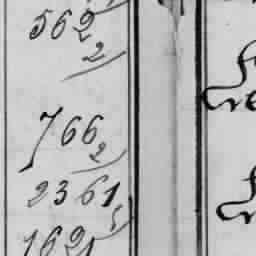 562
2
766
2
2361
5
1621